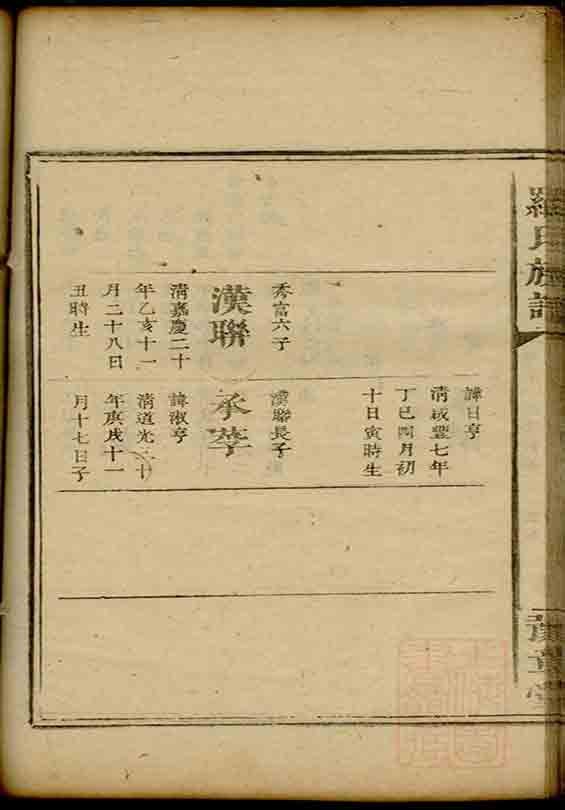 羅氏族譜
豫章堂
秀富六子
漢聯
清嘉慶二十
年乙亥十一
月二十八日
丑時生
諱日亨
清咸豐七年
丁巳四月初
十日寅時生
漢聯長子
承
諱淑亨
清道光三十
年庚戌十一
月十七日子